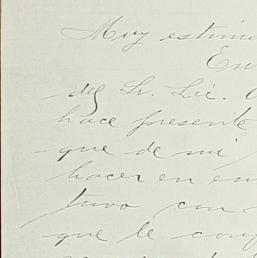 Muy estim
En
del Sr. Lic.
hace presente
que de mi
hacer en
tuvo con
que le con